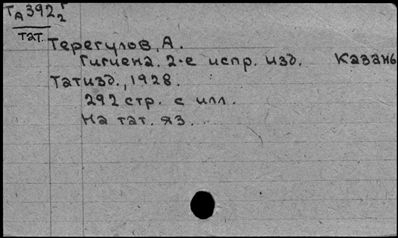 ТА392 Г
2
тат.
Терегулов, А.
Гигиена. 2-е испр. изд. Казань
Татизд., 1928.
292 стр. с илл.
На тат. яз.